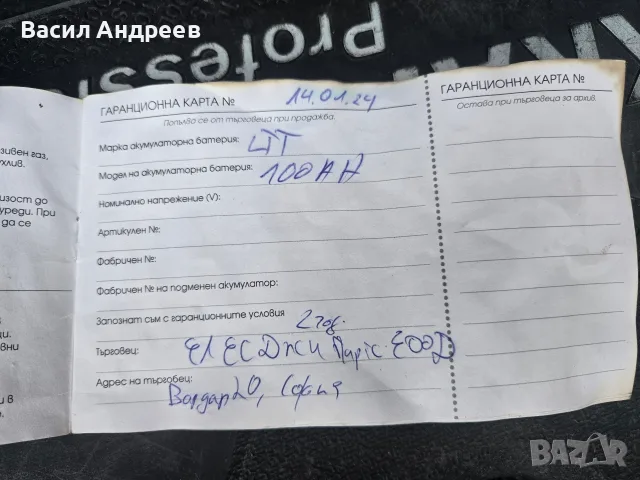 Васил Андреев
Professi
ГАРАНЦИОННА КАРТА № 14.01.24
Попълва се от търговеца при продажба
Марка акумулаторна батерия: LTT
Модел на акумулаторна батерия: 100AH
Номинално напрежение (V):
Артикулен №:
Фабричен №:
Фабричен № на подменен акумулатор:
Запознат съм с гаранционните условия 2 год.
Търговец: ЕЛ ЕС Джи Партс ЕООД
Адрес на търговец:
Вардар 20, София
ГАРАНЦИОННА КАРТА №
Остава при търговеца за архив.
зивен газ,
хлив.
изост до
уреди. При
да се
ци.
вни
и в
BAZAR